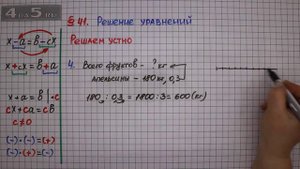 4 AS РУ
§ 41. Решение уравнений
Решаем устно
x - a = b - cx
x + cx = b + a
x + a = b | · c
cx + ca = cb
c ≠ 0
(-) · (-) = (+)
(-) · (+) = (-)
4. Всего фруктов - ? кг
апельсины - 180 кг, 0,3
180 : 0,3 = 1800 : 3 = 600 (кг)